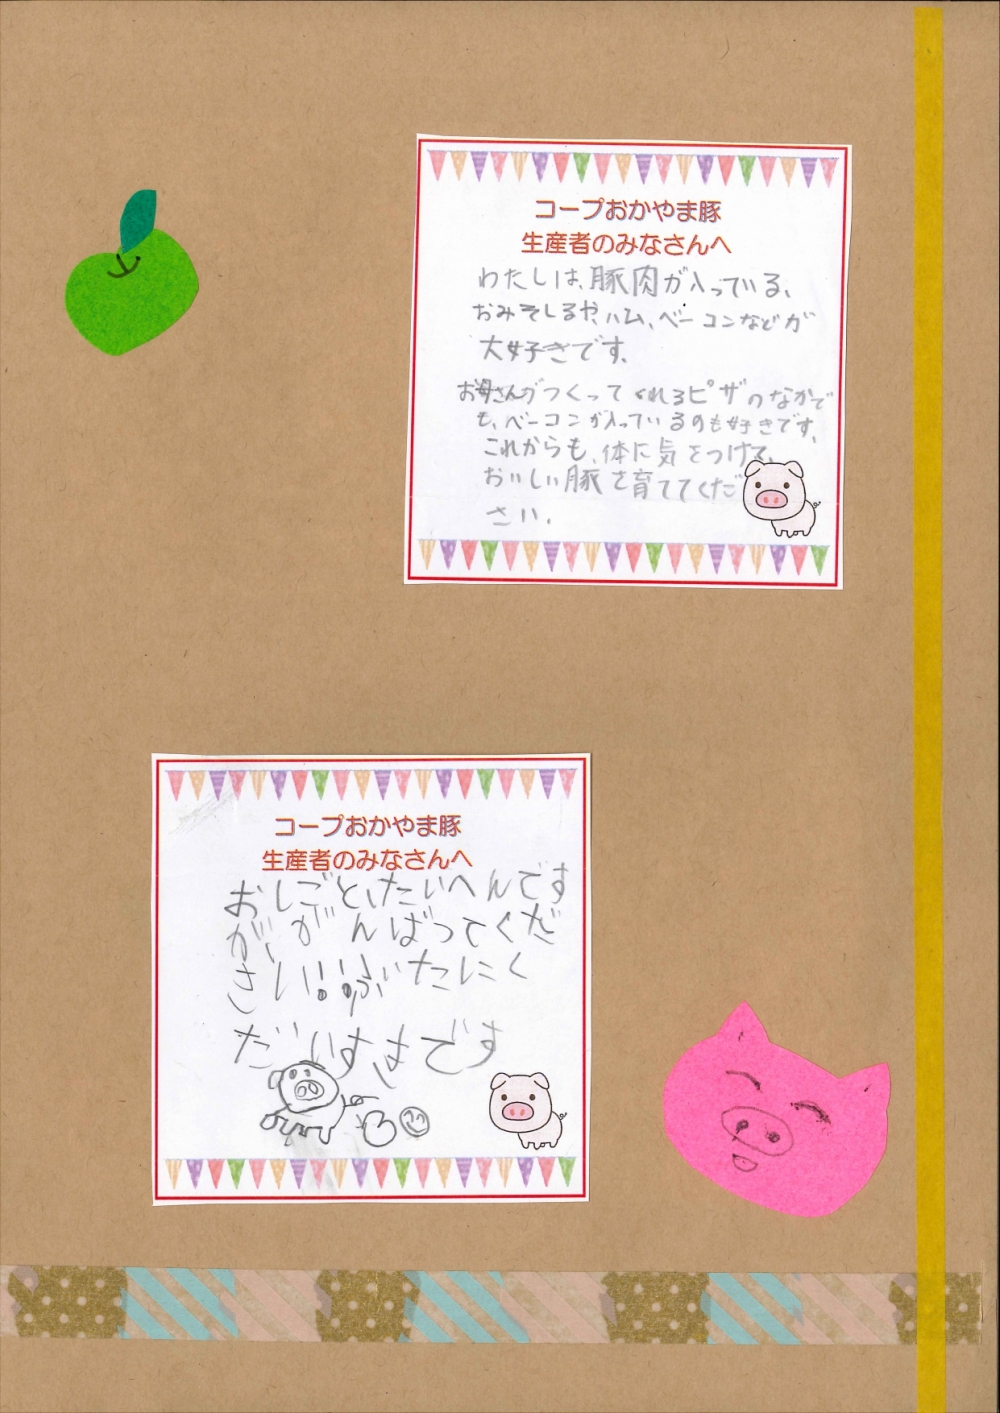 コープおかやま豚
生産者のみなさんへ
わたしは、豚肉が入っている、
おみそしるや、ハム、ベーコンなどが
大好きです。
お母さんがつくってくれるピザのなかで
も、ベーコンが入っているのも好きです。
これからも、体に気をつけて、
おいしい豚を育ててくだ
さい。
コープおかやま豚
生産者のみなさんへ
おしごと、たいへんです
が、がんばってくだ
さい!!ぶたにく
だいすきです